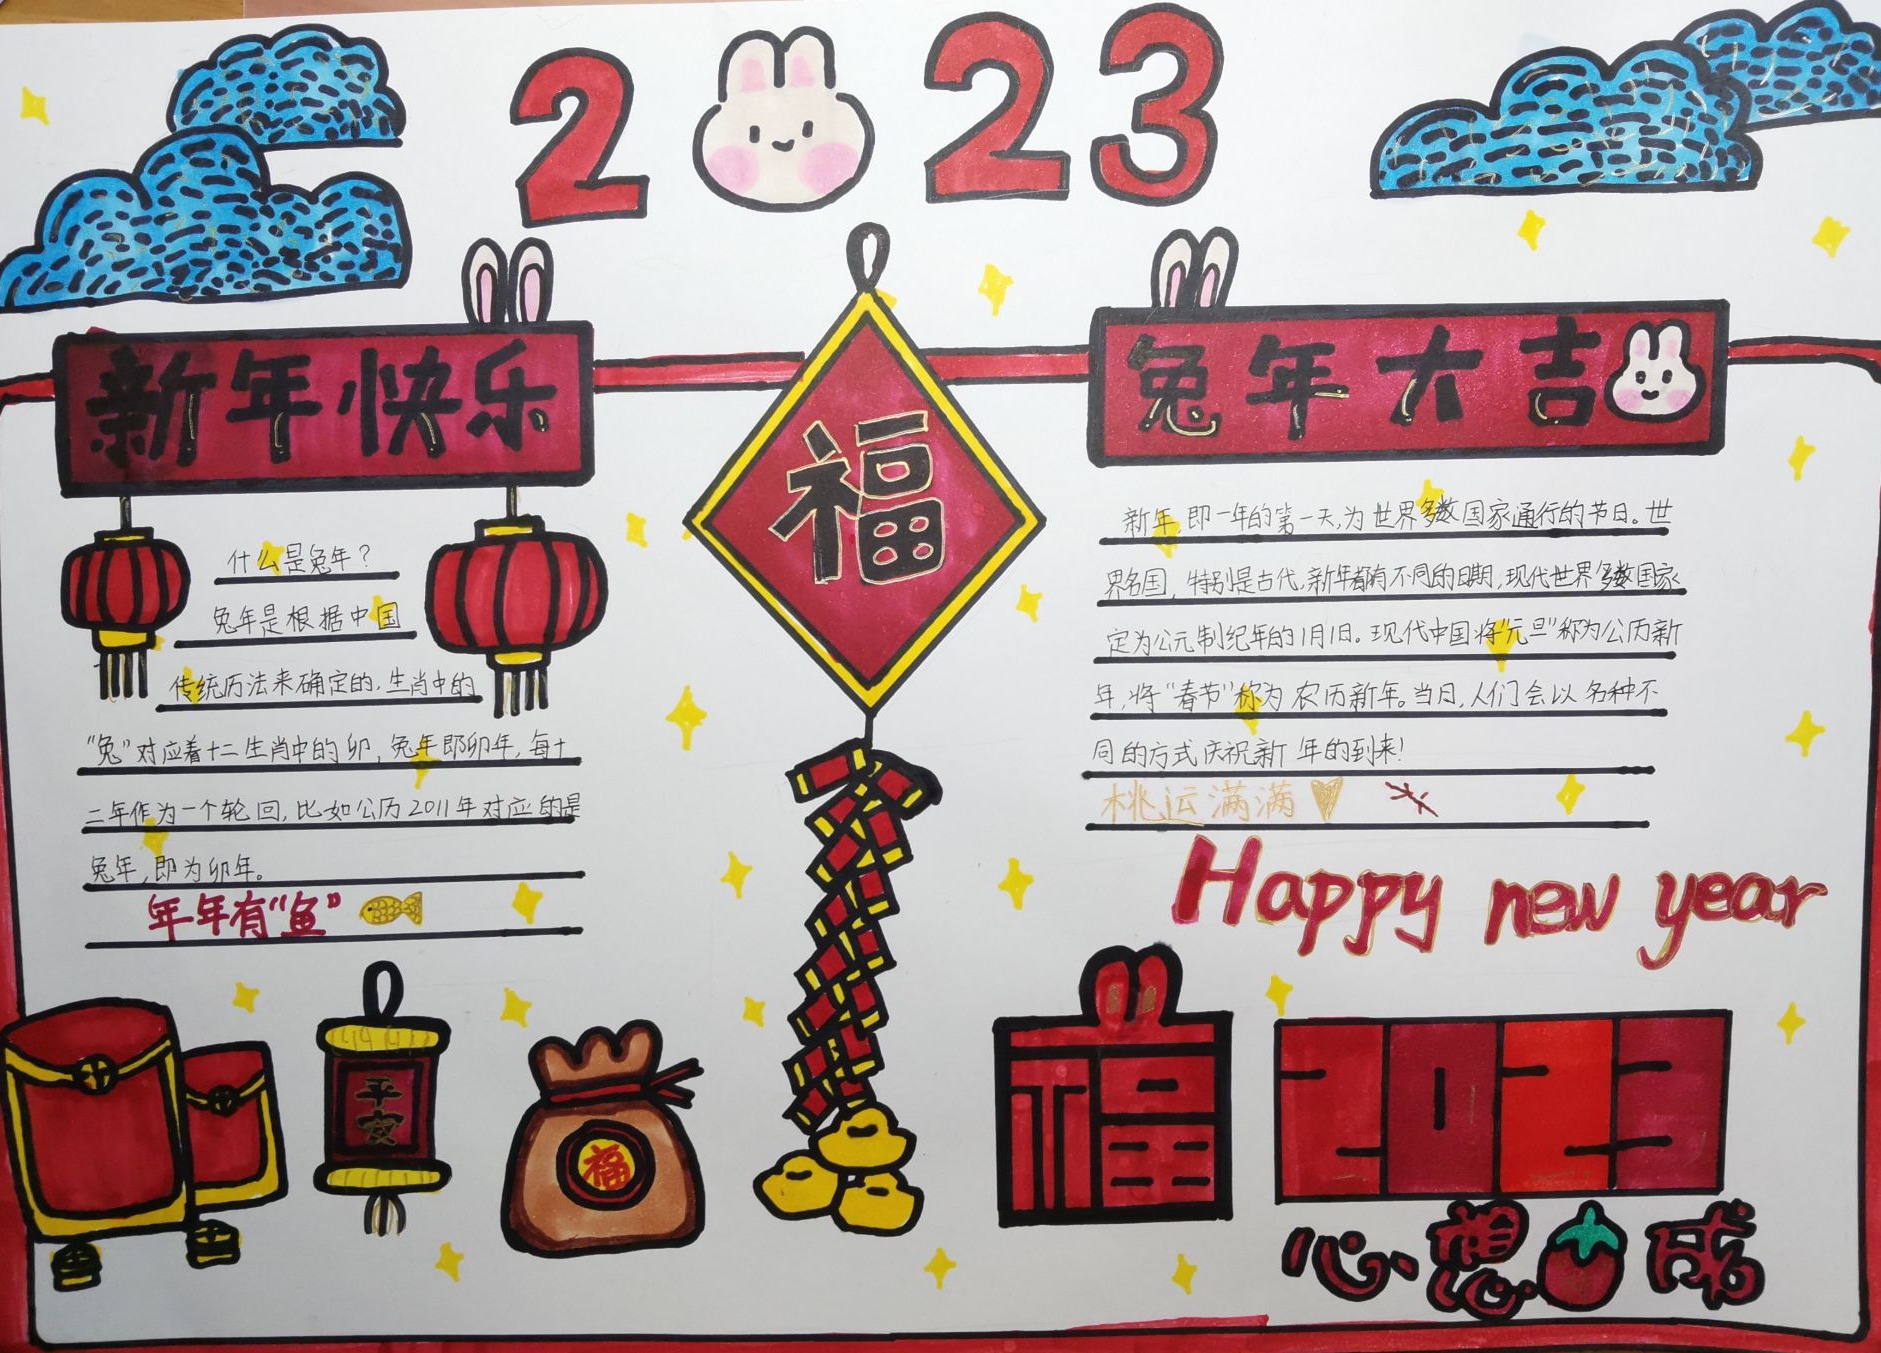 2023
新年快乐
兔年大吉
福
什么是兔年？
兔年是根据中国
传统历法来确定的，生肖中的
“兔”对应着十二生肖中的卯，兔年即卯年，每十
二年作为一个轮回，比如公历2011年对应的是
兔年，即为卯年。
年年有“鱼”
新年，即一年的第一天，为世界多数国家通行的节日。世
界各国，特别是古代，新年都有不同的日期，现代世界多数国家
定为公元制纪年的1月1日。现代中国将“元旦”称为公历新
年，将“春节”称为农历新年。当日，人们会以各种不
同的方式庆祝新年的到来！
桃运满满
Happy new year
平安
福
福
2023
心想成